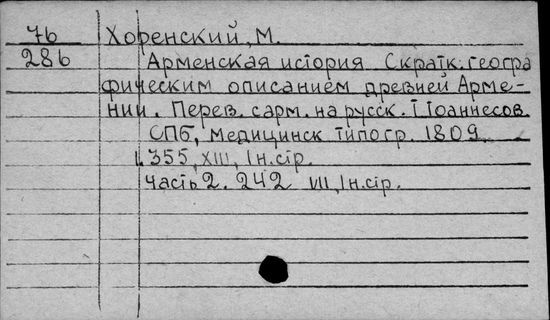 76 Хоренский, М.
286 Арменская история С кратк. геогра
фическим описанием древней Арме-
нии. Перев. с арм. на русск. I Іоаннесов.
СПб, Медицинск типогр. 1809.
I. 355, XIII, 1 н.стр.
Часть 2. 242 VIII, 1 н.стр.